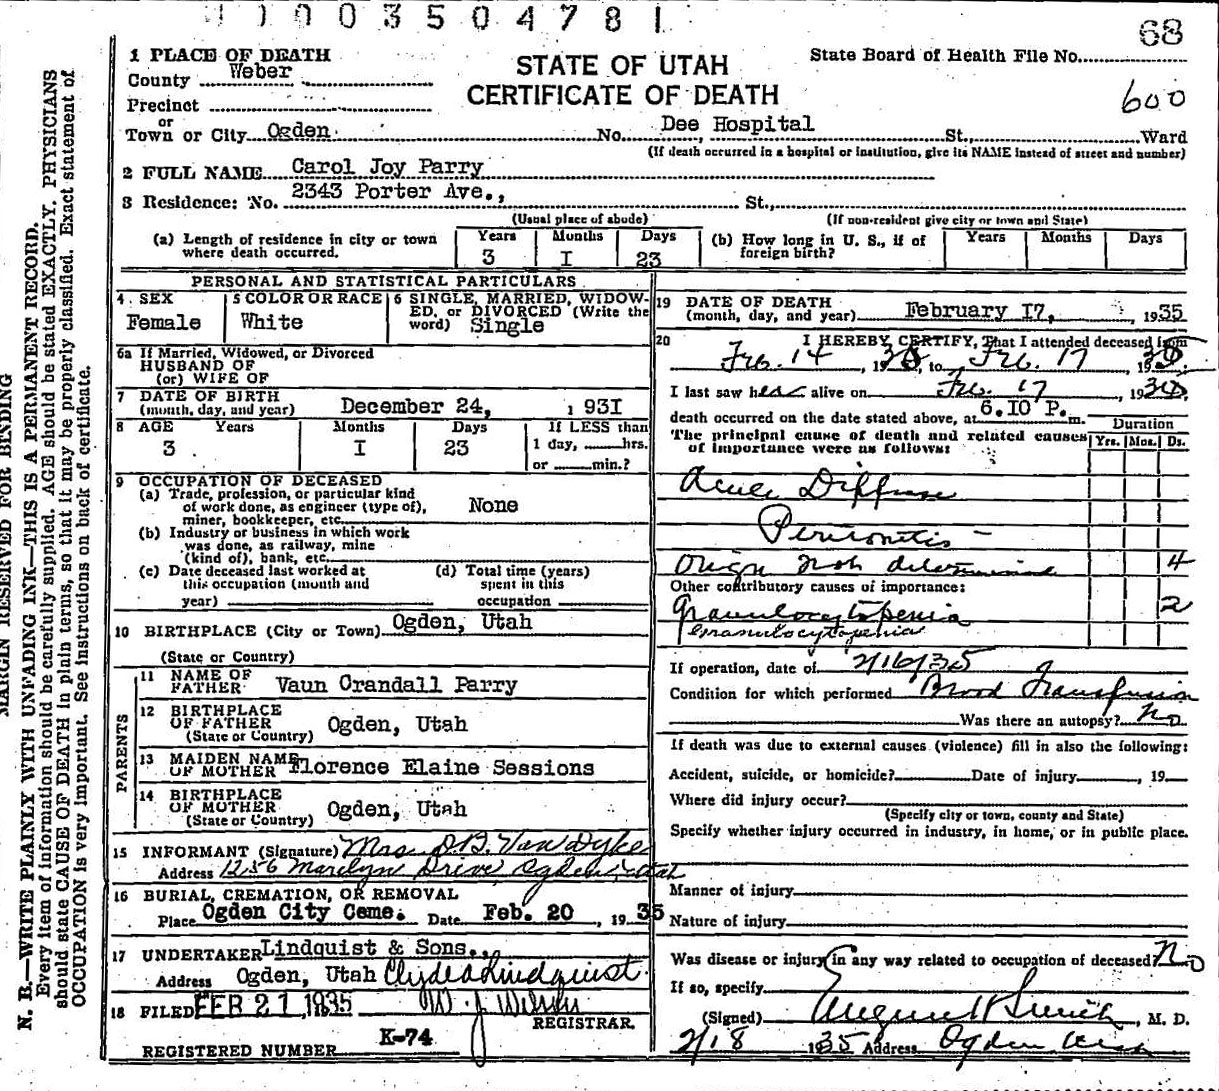 1 0 0 3 5 0 4 7 8 1
68
STATE OF UTAH
CERTIFICATE OF DEATH
State Board of Health File No.
600
1 PLACE OF DEATH
County Weber
Precinct
or
Town or City Ogden No. Dee Hospital St., Ward
(If death occurred in a hospital or institution, give its NAME instead of street and number)
2 FULL NAME Carol Joy Parry
3 Residence: No. 2343 Porter Ave., St.,
(Usual place of abode) (If non-resident give city or town and State)
(a) Length of residence in city or town where death occurred. Years 3 Months I Days 23
(b) How long in U. S., if of foreign birth? Years Months Days
PERSONAL AND STATISTICAL PARTICULARS
4 SEX Female
5 COLOR OR RACE White
6 SINGLE, MARRIED, WIDOWED, or DIVORCED (Write the word) Single
6a If Married, Widowed, or Divorced
HUSBAND OF
(or) WIFE OF
7 DATE OF BIRTH
(month, day, and year) December 24, 193I
8 AGE Years 3 Months I Days 23 If LESS than
1 day, hrs.
or min.?
9 OCCUPATION OF DECEASED
(a) Trade, profession, or particular kind
of work done, as engineer (type of),
miner, bookkeeper, etc. None
(b) Industry or business in which work
was done, as railway, mine
(kind of), bank, etc.
(c) Date deceased last worked at
this occupation (month and
year)
(d) Total time (years)
spent in this
occupation
10 BIRTHPLACE (City or Town) Ogden, Utah
(State or Country)
PARENTS
11 NAME OF
FATHER Vaun Crandall Parry
12 BIRTHPLACE
OF FATHER Ogden, Utah
(State or Country)
13 MAIDEN NAME
OF MOTHER Florence Elaine Sessions
14 BIRTHPLACE
OF MOTHER Ogden, Utah
(State or Country)
15 INFORMANT (Signature) Mrs. D.B. Van Dyke
Address 1256 Marilyn Drive Ogden Utah
16 BURIAL, CREMATION, OR REMOVAL
Place Ogden City Ceme. Date Feb. 20, 1935
17 UNDERTAKER Lindquist & Sons.,
Address Ogden, Utah Clyde Lindquist
18 FILED FEB 21 1935 W. J. 
REGISTRAR
REGISTERED NUMBER K-74
19 DATE OF DEATH
(month, day, and year) February I7, , 1935
20 I HEREBY CERTIFY, That I attended deceased from
Feb. 14, 1935, to Feb. 17 1935
I last saw her alive on Feb. 17, 1935
death occurred on the date stated above, at 6.I0 P. m.
The principal cause of death and related causes
of importance were as follows:
Duration
Yrs. Mos. Ds.
Acute Diffuse
Peritonitis -
Origin not determined 4
Other contributory causes of importance:
Granulocytopenia 2
Granulocytopenia
If operation, date of 2/16/35
Condition for which performed Blood Transfusion
Was there an autopsy? No
If death was due to external causes (violence) fill in also the following:
Accident, suicide, or homicide? Date of injury , 19
Where did injury occur?
(Specify city or town, county and State)
Specify whether injury occurred in industry, in home, or in public place.
Manner of injury
Nature of injury
Was disease or injury in any way related to occupation of deceased? No
If so, specify
(Signed) , M. D.
2/18 1935 Address Ogden Utah
MARGIN RESERVED FOR BINDING
N. B.—WRITE PLAINLY WITH UNFADING INK—THIS IS A PERMANENT RECORD.
Every item of information should be carefully supplied. AGE should be stated EXACTLY. PHYSICIANS
should state CAUSE OF DEATH in plain terms, so that it may be properly classified. Exact statement of
OCCUPATION is very important. See instructions on back of certificate.